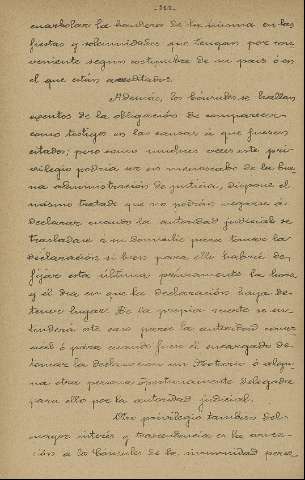 enarbolar la bandera de la misma en las
fiestas y solemnidades que tengan por con
veniente segun costumbre de su pais ó en
el que están acreditados.
Además, los Cónsules se hallan
exentos de la obligación de comparecer
como testigos en las causas á que fuesen
citados; pero como muchas veces este pri
vilegio podría ser en menoscabo de la bue
na administración de justicia, dispone el
mismo tratado que no podrán negarse á
declarar cuando la autoridad judicial se
trasladare a su domicilio para tomar la
declaración si bien para ello habrá de
fijar esta última previamente la hora
y el dia en que la declaración haya de
tener lugar. De la propia suerte se en
tenderá este caso para la autoridad consu
lar ó para cuando fuere el encargado de
tomar la declaración un Notario ó algu
na otra persona oportunamente delegada
para ello por la autoridad judicial.
Otro privilegio tambien del
mayor interés y trascendencia es la
á los Cónsules de la inmunidad perso